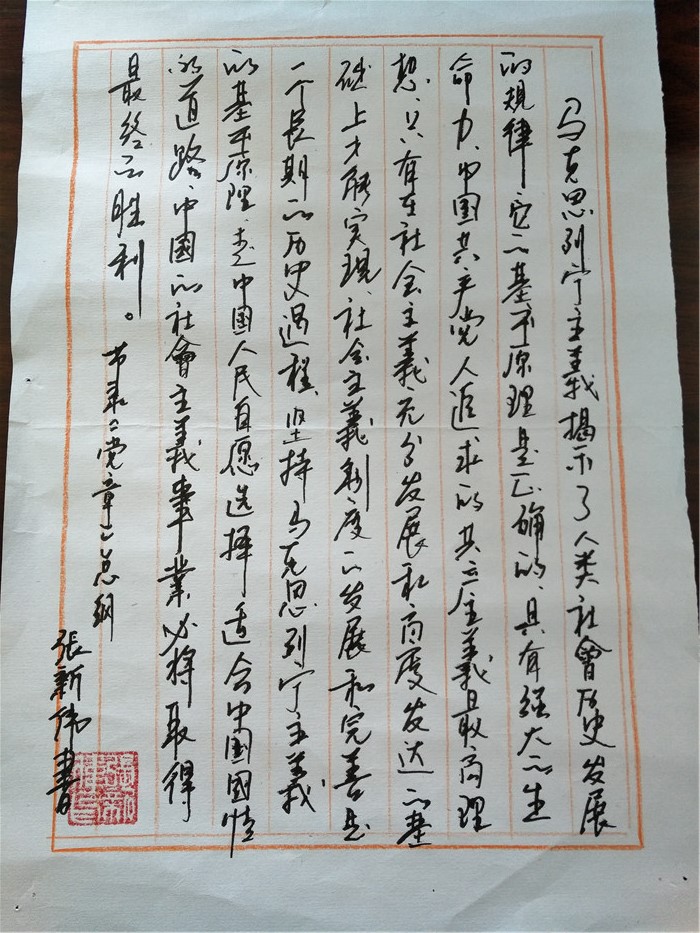 马克思列宁主義揭示了人类社會历史发展
的規律，它的基本原理是正确的，具有强大的生
命力、中国共产党人追求的共产主義最高理
想，只有在社会主義充分发展和高度发达的基
础上才能实现、社会主義制度的发展和完善是
一个长期的历史过程、坚持马克思列宁主義
的基本原理，走中国人民自愿选择适合中国国情
的道路，中國的社會主義事業必将取得
最终的胜利。
节录《党章》总纲
張新偉書